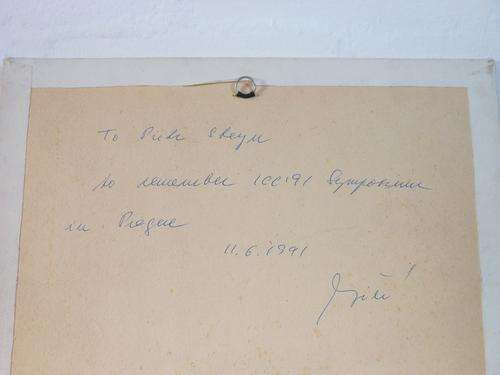 To
to remember ICC'91 Symposium
in Prague
11.6.1991
Jiří